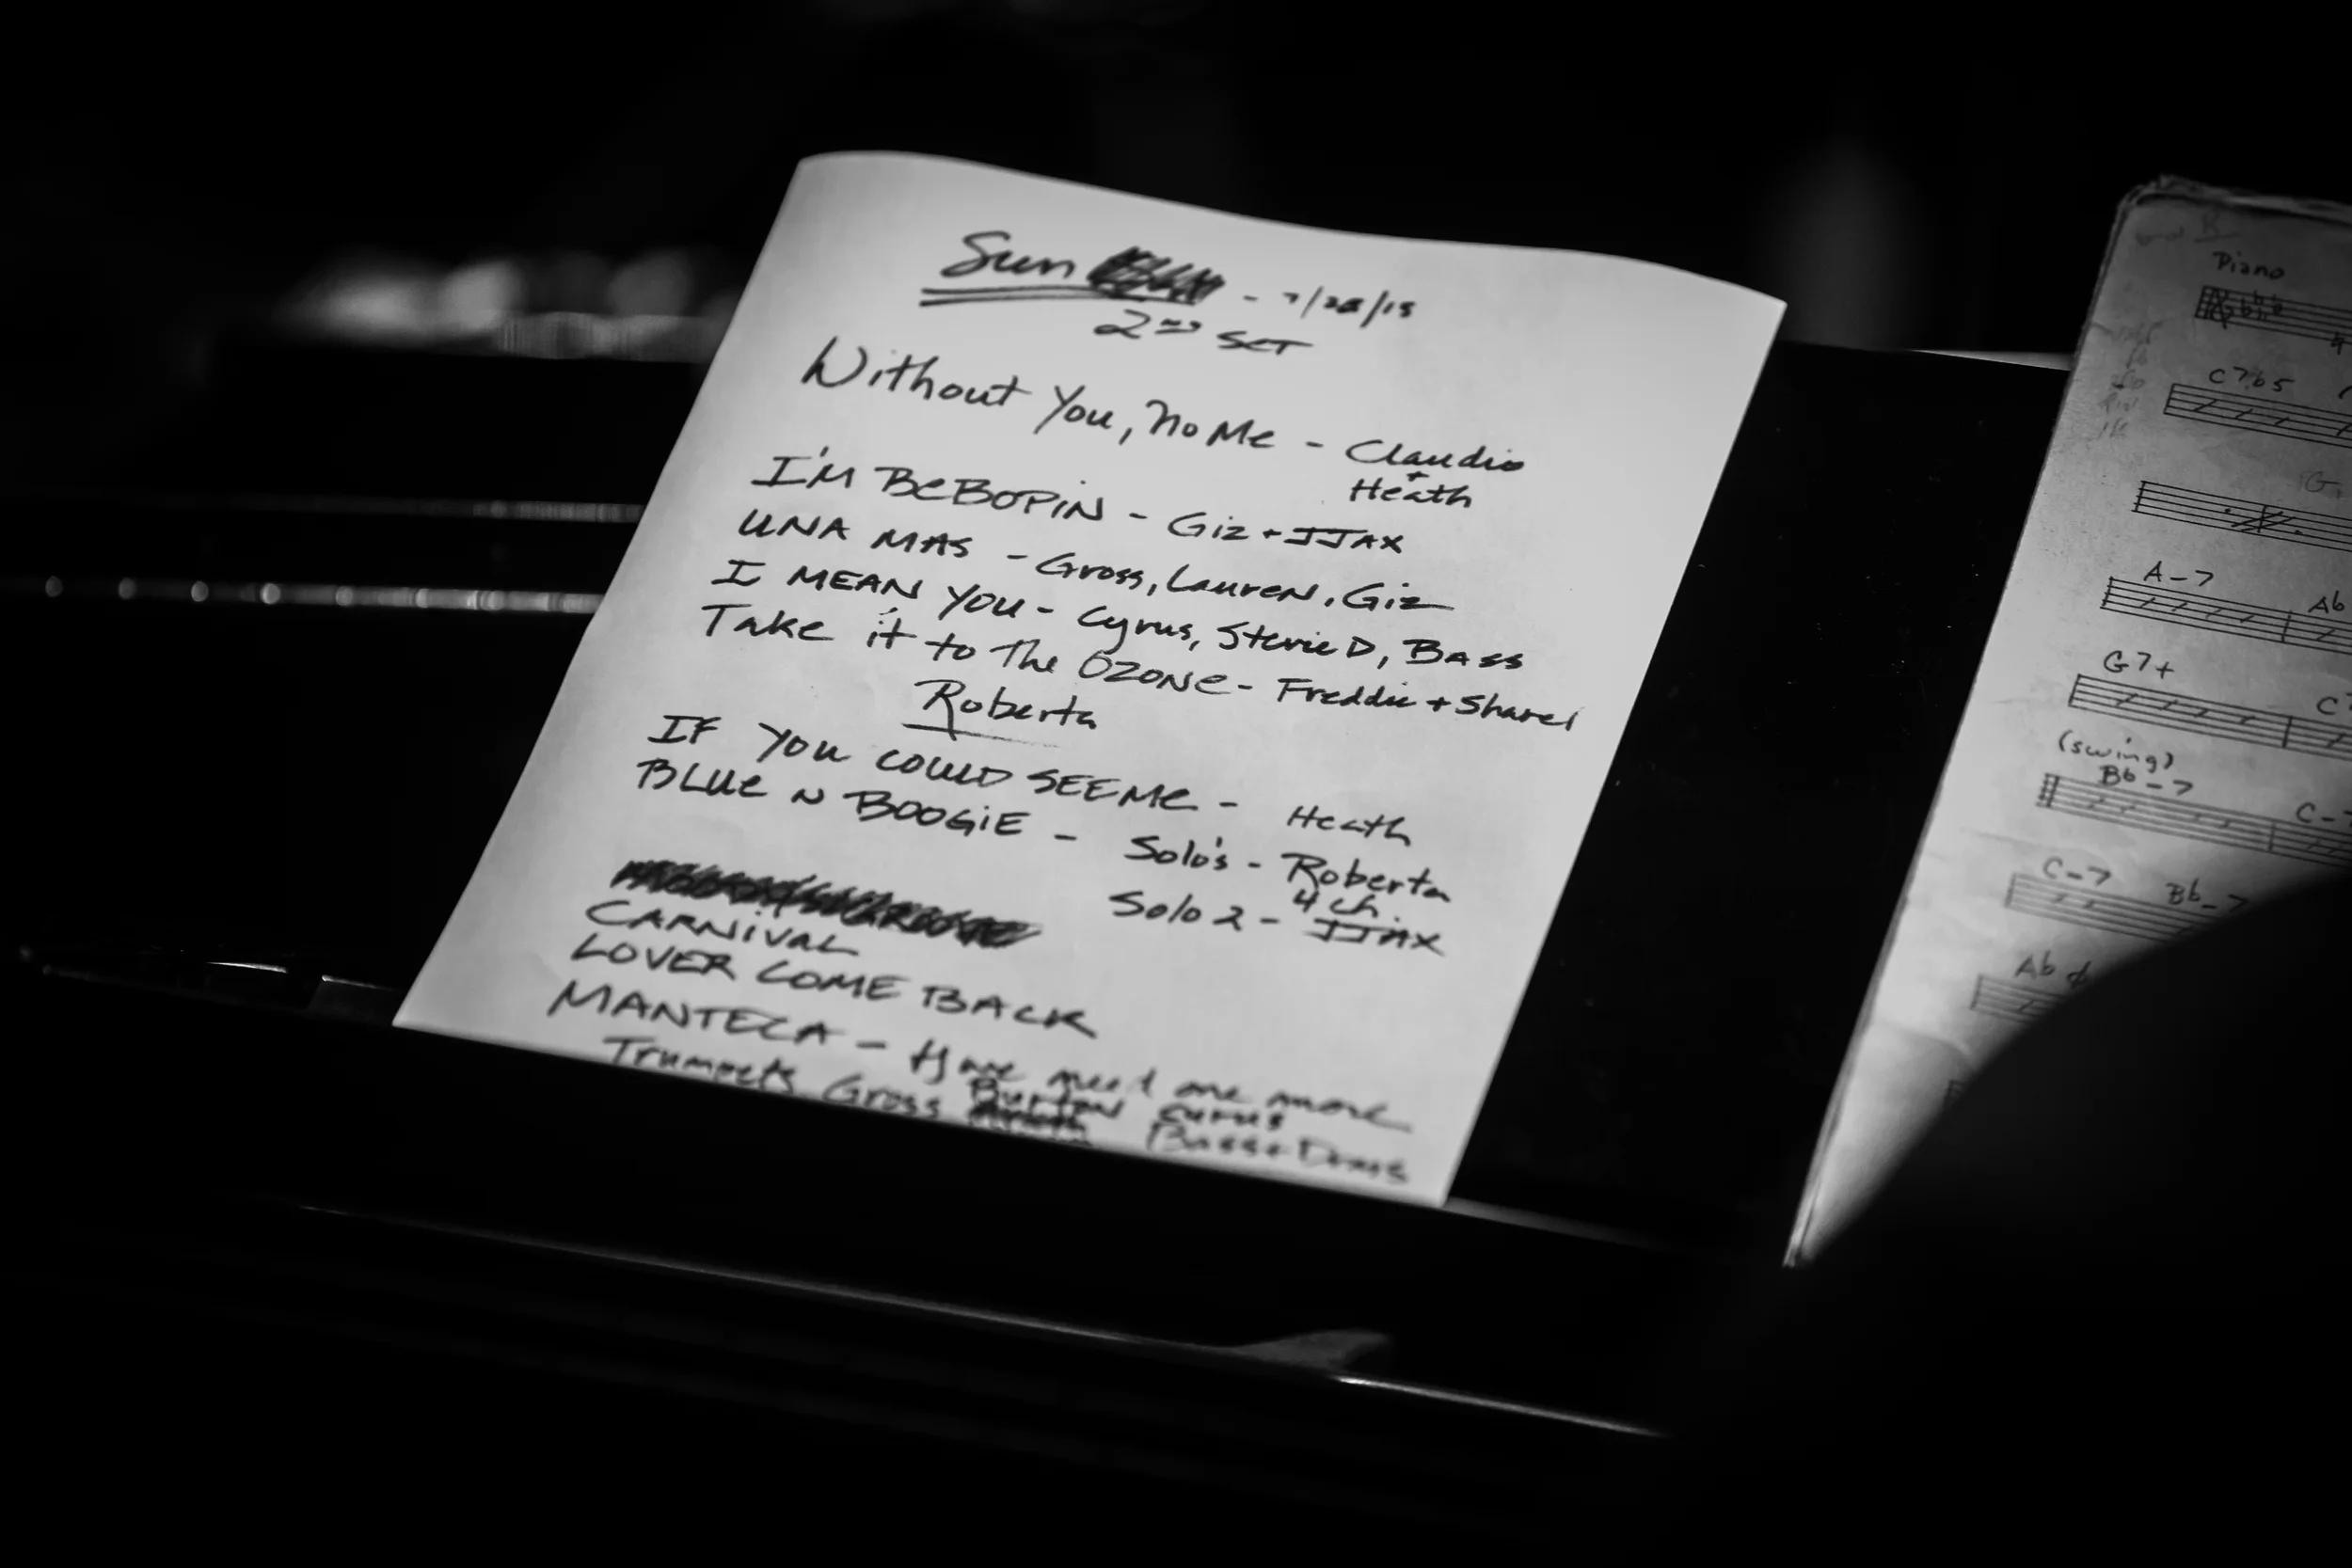 Sun - 7/28/19
2ND SET
Without You, No Me - Claudio
+
Heath
I'M BEBOPIN - Giz + JJAX
UNA MAS - Gross, LaureN, Giz
I MEAN YOU - Cyrus, Stevie D, BASS
Take it to The OZONE - Freddie + Sharel
Roberta
IF YOU COULD SEE Me - Heath
BLUe N BOOGiE - Solo's - Roberta
4 ch.
Solo 2 - JJAX
CARNiVAL
LOVER COME BACK
MANTECA - Have need one more
Trumpets Gross Burton Cyrus
Bass +
Piano
C7b5
A-7 Ab
G7+ C7
(swing)
Bb-7 C-7
C-7 Bb-7
Ab